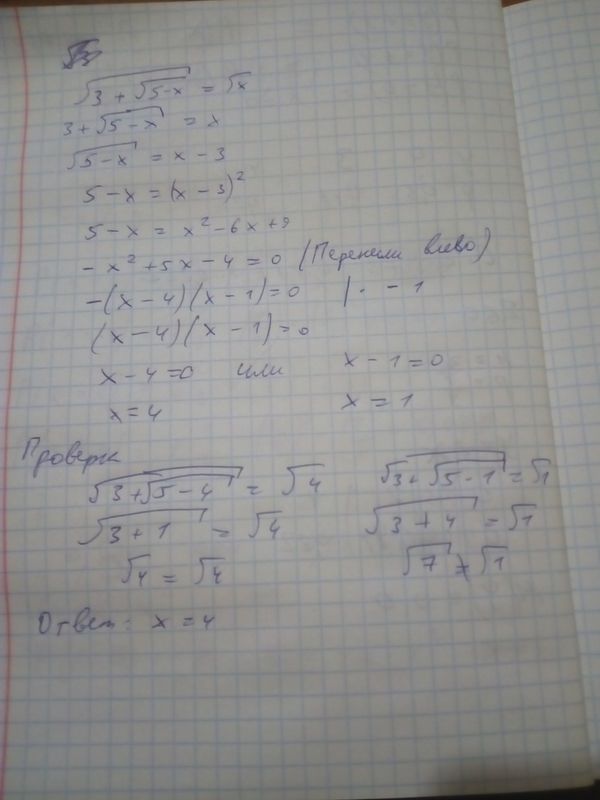 √(3 + √(5-x)) = √x
3 + √(5 - x) = x
√(5 - x) = x - 3
5 - x = (x - 3)²
5 - x = x² - 6x + 9
- x² + 5x - 4 = 0 (Перенесли влево)
-(x - 4)(x - 1) = 0 | · - 1
(x - 4)(x - 1) = 0
x - 4 = 0 или x - 1 = 0
x = 4 x = 1
Проверк
√(3 + √(5 - 4)) = √4 √(3 + √(5 - 1)) = √1
√(3 + 1) = √4 √(3 + 4) = √1
√4 = √4 √7 ≠ √1
Ответ: x = 4